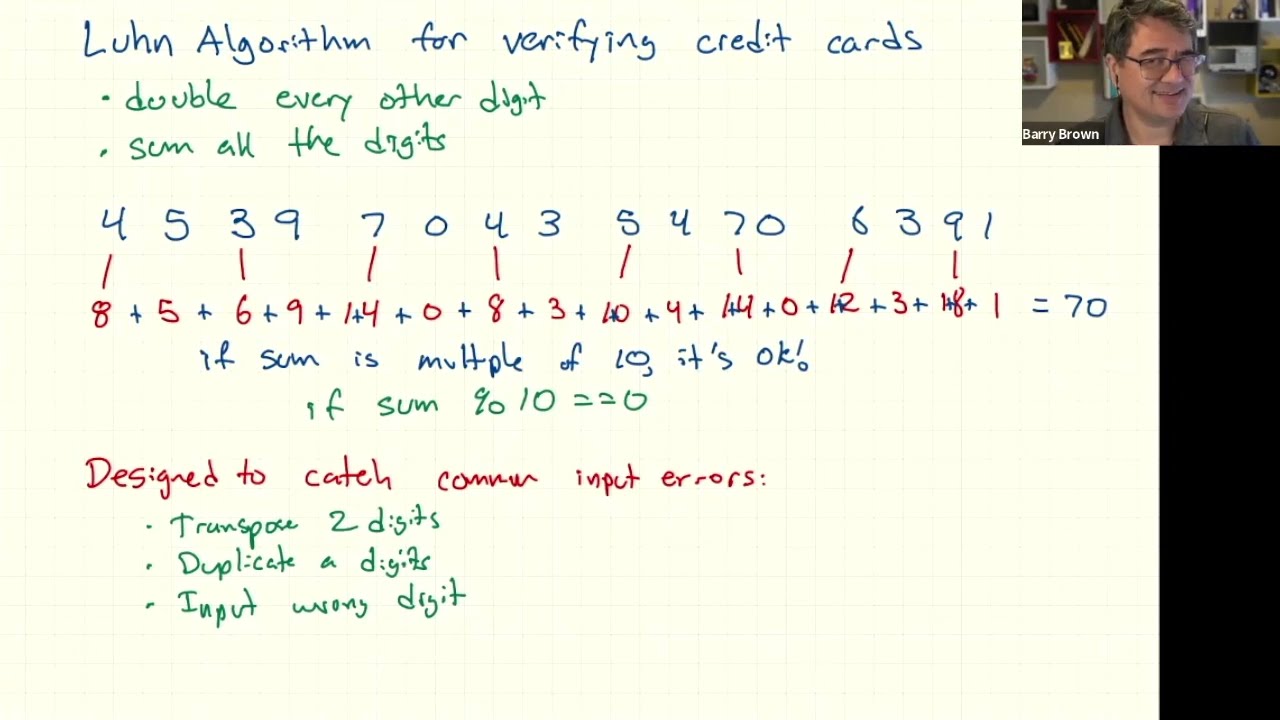 Luhn Algorithm for verifying credit cards
• double every other digit
• sum all the digits
Barry Brown
4 5 3 9 7 0 4 3 5 4 7 0 6 3 9 1
8 + 5 + 6 + 9 + 1+4 + 0 + 8 + 3 + 1+0 + 4 + 1+4 + 0 + 1+2 + 3 + 1+8 + 1 = 70
if sum is multple of 10, it's ok!
if sum % 10 == 0
Designed to catch common input errors:
• Transpose 2 digits
• Duplicate a digits
• Input wrong digit